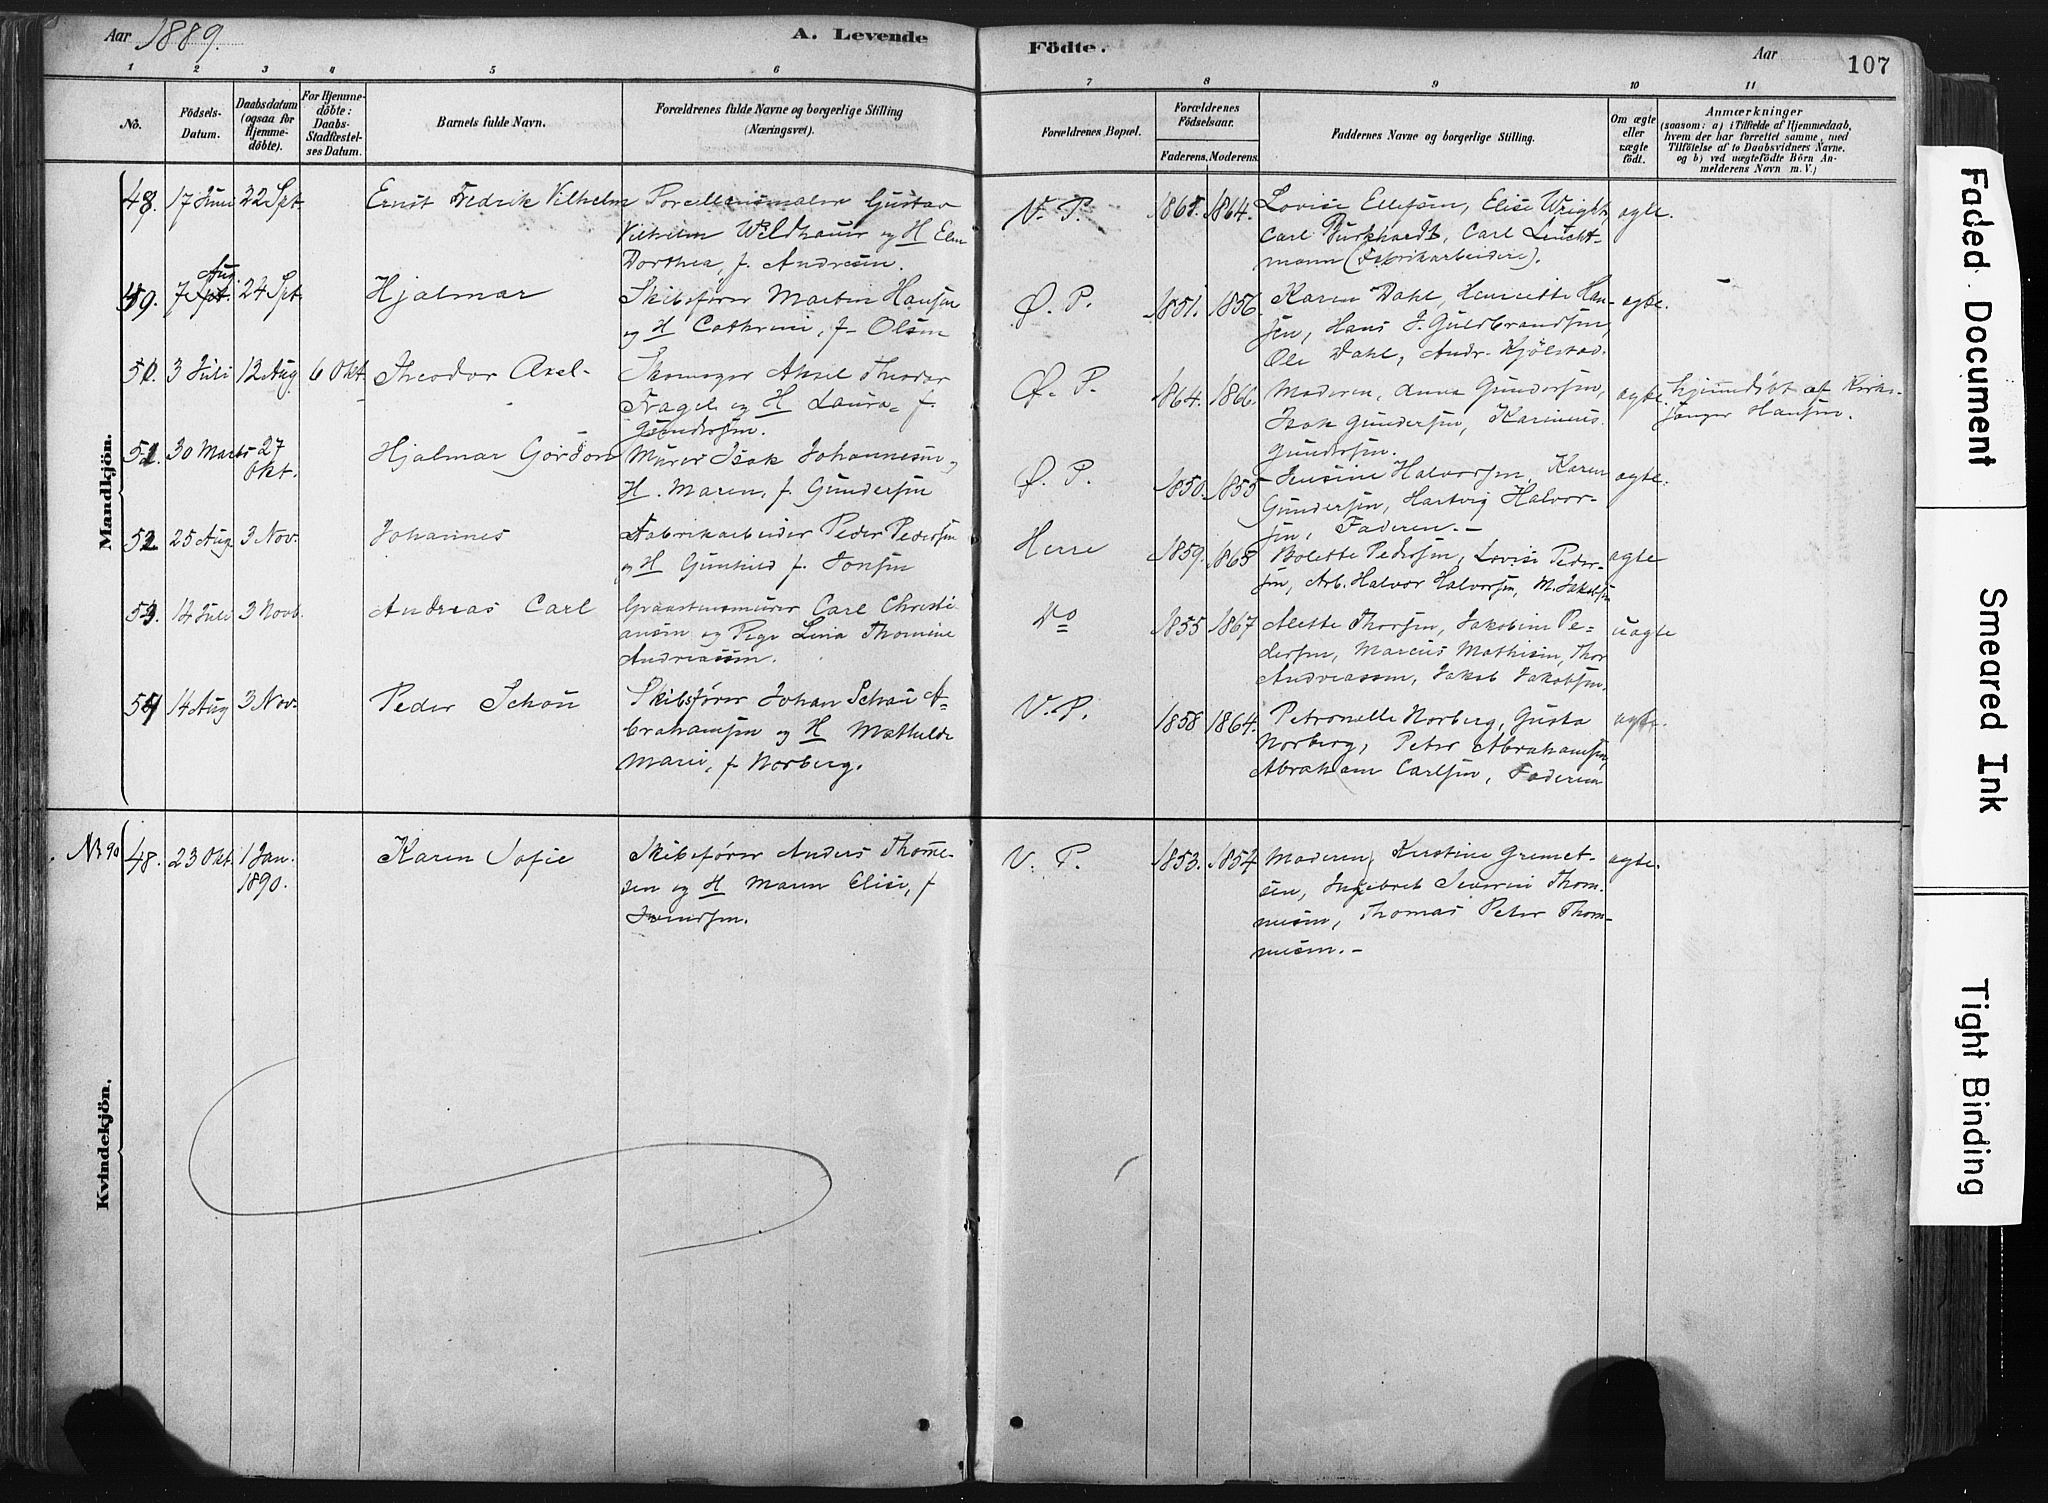 Aar 1889.
A. Levende
Födte.
Aar
107
1 2 3 4 5 6 7 8 9 10 11
No.
Födsels-
Datum.
Daabsdatum
(ogsaa for
Hjemme-
döbte).
For Hjemme-
döbte:
Daabs-
Stadfæstel-
ses Datum.
Barnets fulde Navn.
Forældrenes fulde Navne og borgerlige Stilling
(Næringsvei).
Forældrenes Bopæl.
Forældrenes
Födselsaar.
Faderens. Moderens.
Faddernes Navne og borgerlige Stilling.
Om ægte
eller
uægte
födt.
Anmærkninger
(saasom: a) i Tilfælde af Hjemmedaab,
hvem der har forrettet samme, med
Tilföielse af to Daabsvidners Navne,
og b) ved uægtefödte Börn An-
melderens Navn m. V.)
Mandkjön.
48. 17 Juni 22 Spt. Ernst Fredrik Vilhelm
Porcellænsmaler Gustav
Vilhelm Wildhauer og H
Dorthea, f. Andresen.
V. P. 1865. 1864.
Lovise Ellefsen, Elise Wright
Carl Burkhardt, Carl Leucht-
mann (Fabrikarbeidere).
ægte.
7 Aug 24 Spt. Hjalmar
Skibsfører Martin Hansen
og H Cathrine, f. Olsen
Ø. P. 1851. 1856.
Karen Dahl, Henriette Han-
sen, Hans J. Guldbrandsen
Ole Dahl, Andr. Kjølstad.
ægte.
3 Juli 12 Aug 6 Okt. Theodor Axel
Skomager Aksel Theodor
Fragel og H Laura, f.
Gundersen.
Ø. P. 1864. 1866.
Moderen, Anna Gundersen,
Isak Gundersen, Karinius
Gundersen.
ægte.
Hjemmedøbt af Kirke-
sanger Hansen.
30 Marts 27
Okt.
Hjalmar Gordon
Murer Isak Johannesen og
H. Maren, f. Gundersen
Ø. P. 1850. 1855
Jensine Halvorsen, Karen
Gundersen, Hartvig Halvor-
sen, Faderen.-
ægte.
52 25 Aug 3 Nov. Johannes
Fabrikarbeider Peder Pedersen
og H Gunhild f. Jonsen
Herre 1859. 1865
Bolette Pedersen, Lovise Peder-
sen, Arb. Halvor Halvorsen, M. Jakobsen
ægte
53. 14 Juli 3 Novb. Andreas Carl
Graastensmurer Carl Christi-
ansen og Pige Lina Thomine
Andreassen.
Do 1855 1867
Alette Thorsen, Jakobine Pe-
dersen, Marcus Mathisen, Thor
Andreassen, Jakob Jakobsen.
uægte
54 14 Aug 3 Nov. Peder Schou
Skibsfører Johan Schou A-
brahamsen og H Mathilde
Marie, f. Norberg.
V. P. 1858 1864.
Petronelle Norberg, Gusta
Norberg, Peter Abrahamsen,
Abraham Carlsen, Faderen
ægte.
Kvindekjön.
48. 23 Okt. 1 Jan.
1890.
Karen Sofie
Skibsfører Anders Thome-
sen og H Maren Elise, f.
Svendsen.
V. P. 1853. 1854
Moderen, Kirstine Gremet-
sen, Ingebret Severin Thom-
mesen, Thomas Peter Thom-
mesen.-
ægte.
Faded Document
Smeared Ink
Tight Binding